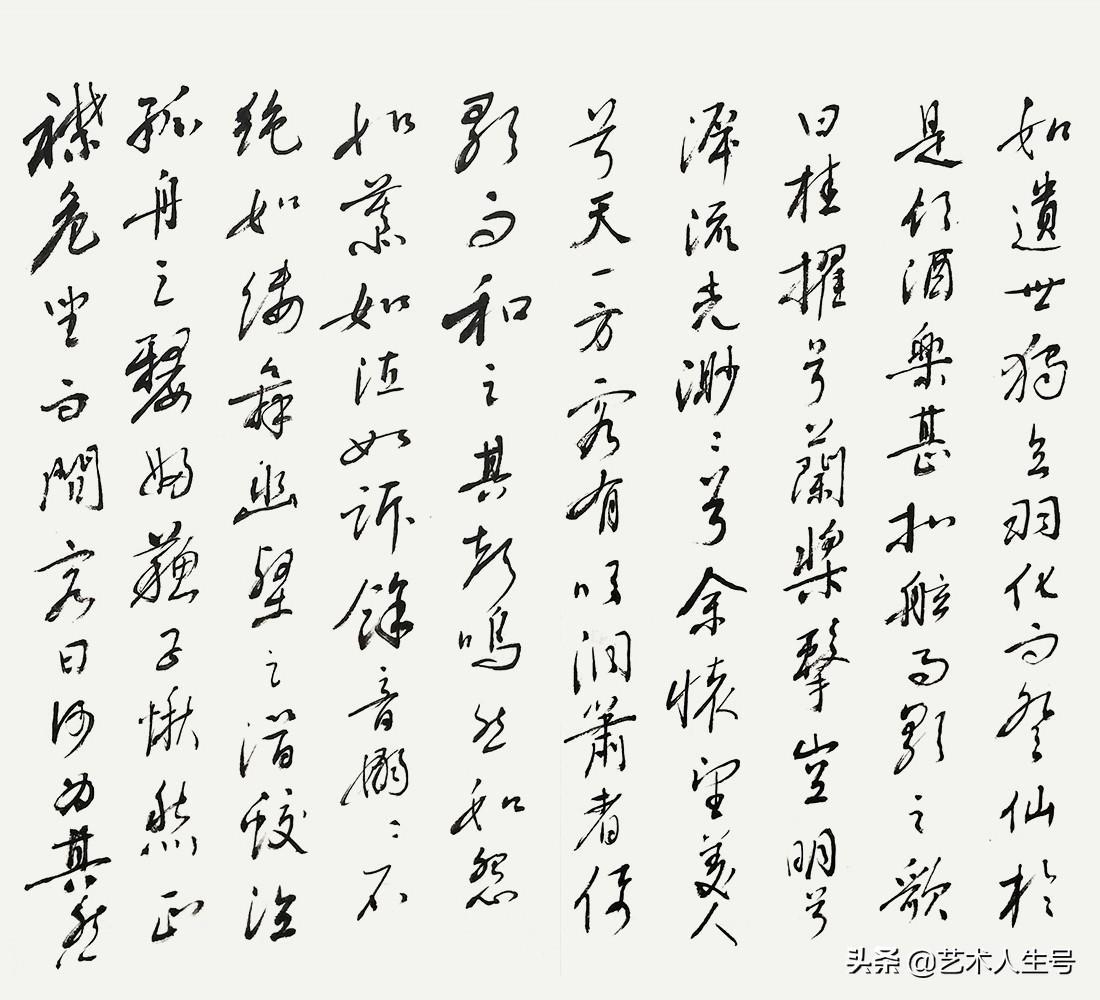 如遺世獨立羽化而登仙於
是飲酒樂甚扣舷而歌之歌
曰桂擢兮蘭槳擊空明兮
溯流光渺〻兮余懷望美人
兮天一方客有吹洞蕭者倚
歌而和之其聲嗚然如怨
如慕如泣如訴餘音嫋〻不
絶如縷舞幽壑之潛蛟泣
孤舟之嫠婦蘇子愀然正
襟危坐而問客曰何為其然
头条 @艺术人生号